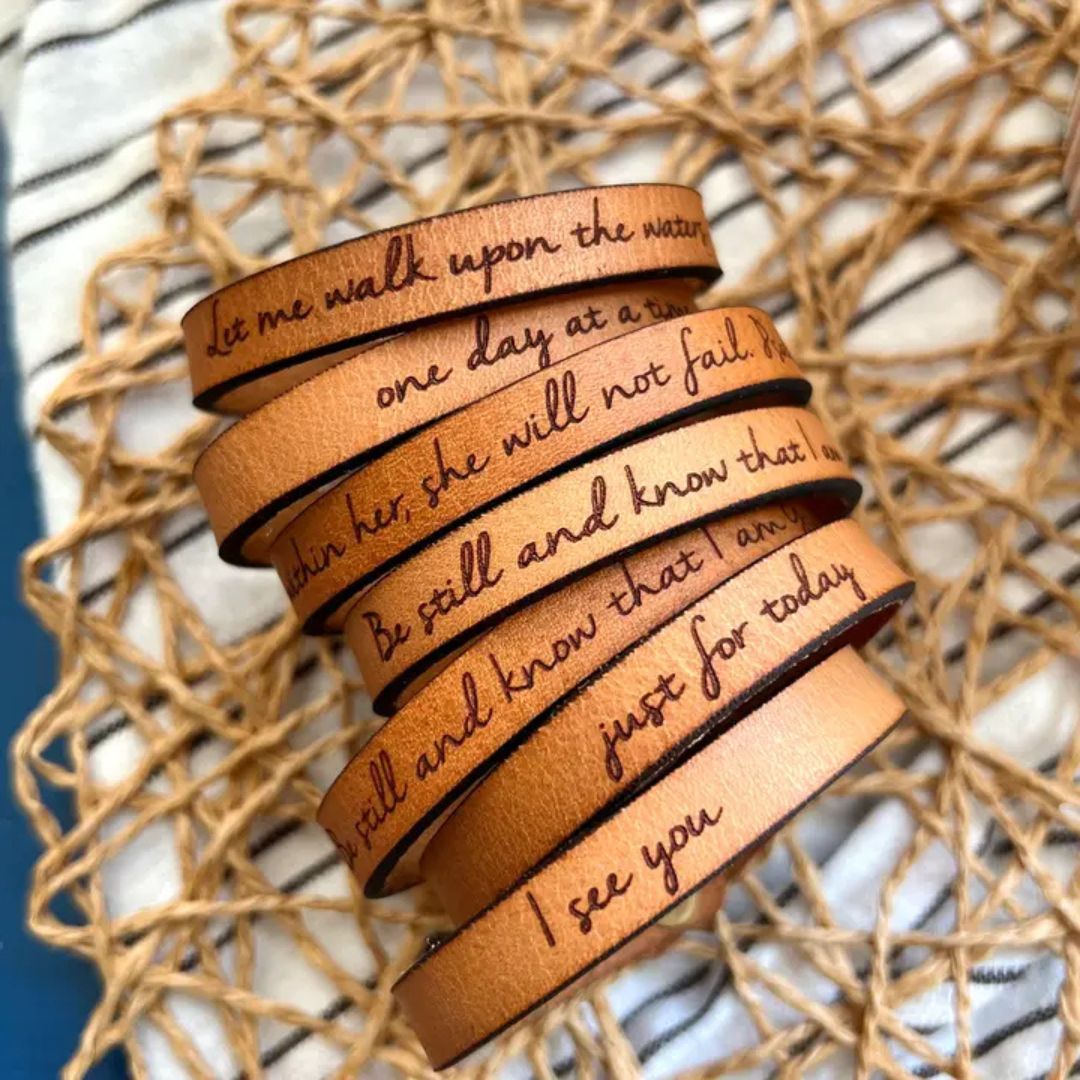 Let me walk upon the water
one day at a
her, she will not fail.
Be still and know that I am
still and know that I am
just for today
I see you